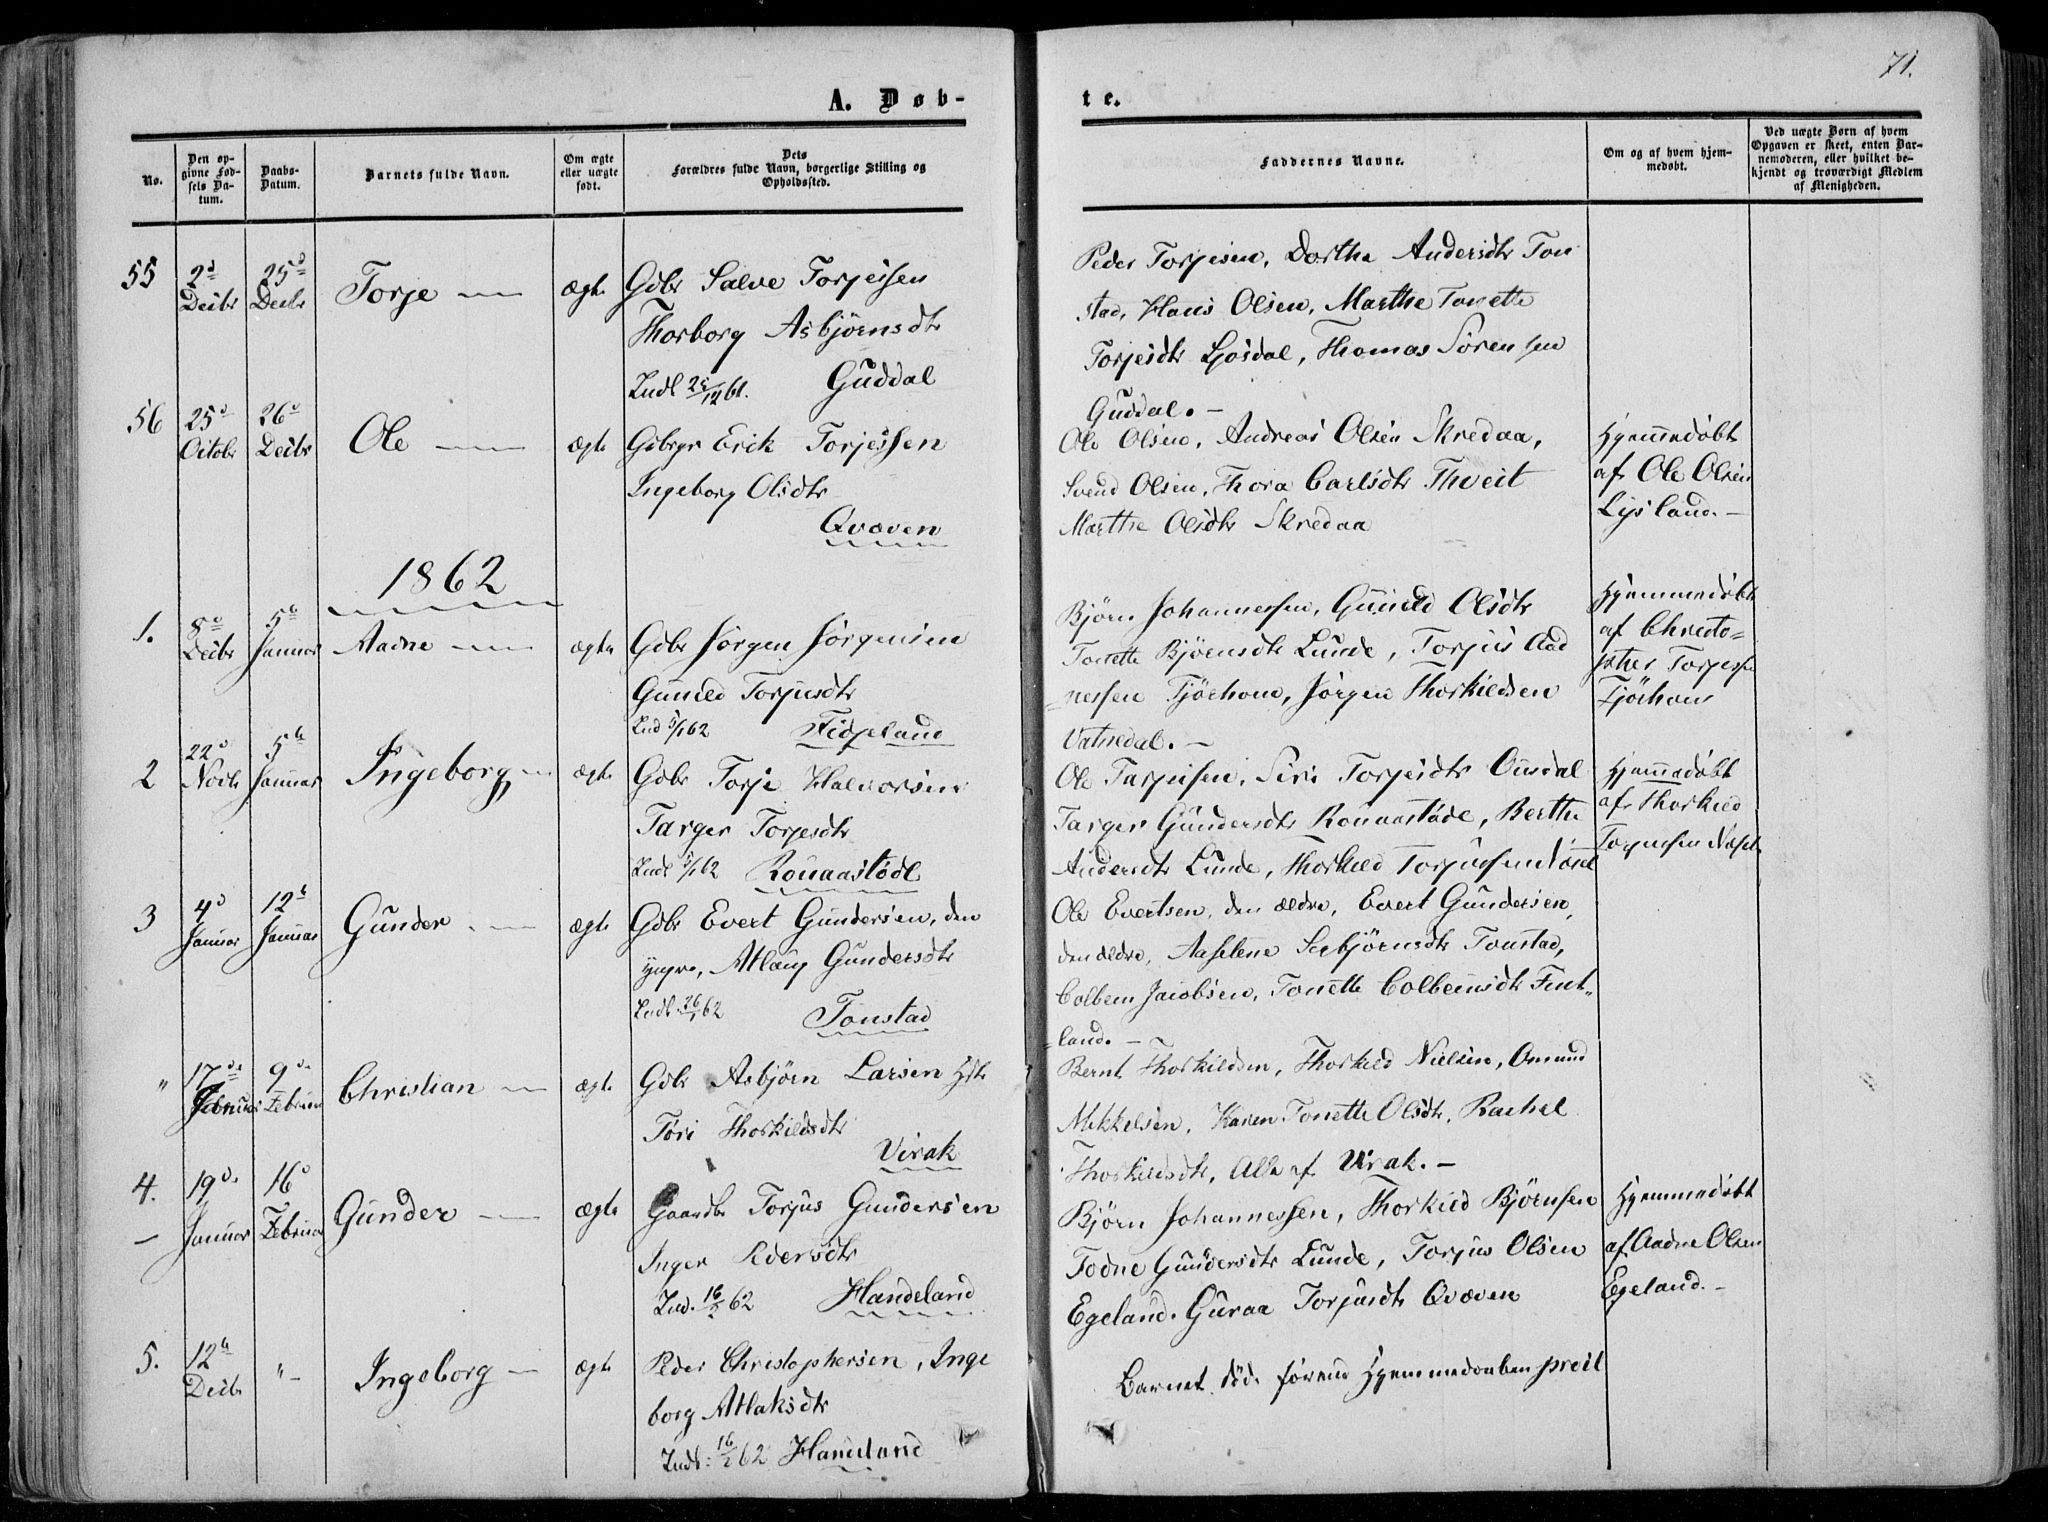 71.
A. Døb-
te.
No.
Den op-
givne Fød-
sels Da-
tum.
Daabs-
Datum.
Barnets fulde Navn.
Om ægte
eller uægte
født.
Dets
Forældres fulde Navn, borgerlige Stilling og
Opholdssted.
Faddernes Navne.
Om og af hvem hjem-
medøbt.
Ved uægte Børn af hvem
Opgaven er skeet, enten Bar-
nemoderen, eller hvilket be-
kjendt og troværdigt Medlem
af Menigheden.
55
2d
Decbr
25d
Decbr
Torje
ægte
Gdbr Salve Torjessen
Thorborg Asbjørnsdtr
Indl 25/12 61. Guddal
Peder Torjesen, Dorthe Andersdtr Ton
stad, Hans Olsen, Marthe Tonette
Torjesdtr Ljosdal, Thomas Sørensen
Guddal. -
56
25d
Octobr
26d
Decbr
Ole
ægte
Gdbrgr Erik Torjessen
Ingeborg Olsdtr
Qvæven
Ole Olsen, Andreas Olsen Skredaa,
Svend Olsen, Thora Carlsdtr Thveit
Marthe Olsdtr Skredaa
Hjemmedøbt
af Ole Olsen
Lysland. -
1862
1.
8d
Decbr
5te
Januar
Aadne
ægte
Gdbr Jørgen Jørgensen
Gunild Torjusdtr
Ind 5/1 62 Fidjeland
Bjørn Johannessen, Gunild Olsdtr
Tonette Bjørnsdtr Lunde, Torjus Aad
=nessen Tjørhom, Jørgen Thorkildsen
Vatnedal. -
Hjemmedøbt
af Christo=
pher Torjessen
Tjørhom
2
22d
Novbr
5te
Januar
Ingeborg
ægte
Gdbr Torje Halvorsen
Targer Torjesdtr
Indl 5/1 62 Ronaastøde
Ole Tarjeisen, Siri Torjesdtr Ousdal
Targer Gundersdtr Ronaastøde, Berthe
Andersdtr Lunde, Thorkild Torjussen Næset
Hjemmedøbt
af Thorkild
Torjussen Næset
3
4d
Januar
12te
Januar
Gunder
ægte
Gdbr Evert Gundersen, den
yngre, Atlaug Gundersdtr
Indl. 26/1 62 Tonstad
Ole Evertsen, den ældre, Evert Gundersen,
den ældre, Aaselene Seebjørnsdtr Tonstad,
Colbein Jacobsen, Tonette Colbeinsdtr Fint=
=land. -
"
17de
Februar
9de
Februar
Christian
ægte
Gdbr Asbjørn Larsen
Tori Thorkildsdtr
Virak
Bernt Thorkildsen, Thorkild Nielsen, Omund
Mikkelsen, Karen Tonette Olsdtr, Rachel
Thorkildsdtr, Alle af Virak. -
4.
19de
Januar
16d
Februar
Gunder
ægte
Gaardbr Torjus Gundersen
Inger Pedersdtr
Ind. 16/2 62 Handeland
Bjørn Johannessen, Thorkild Bjørnsen
Todne Gundersdtr Lunde, Torjus Olsen
Egeland. Guraa Torjusdtr Qvæven
Hjemmedøbt
af Aadne Olsen
Egeland. -
5.
12te
Decbr
"
Ingeborg
ægte
Peder Christophersen, Inge
borg Atlaksdtr
Indl: 16/2 62 Handeland
Barnet døde førend Hjemmedaaben